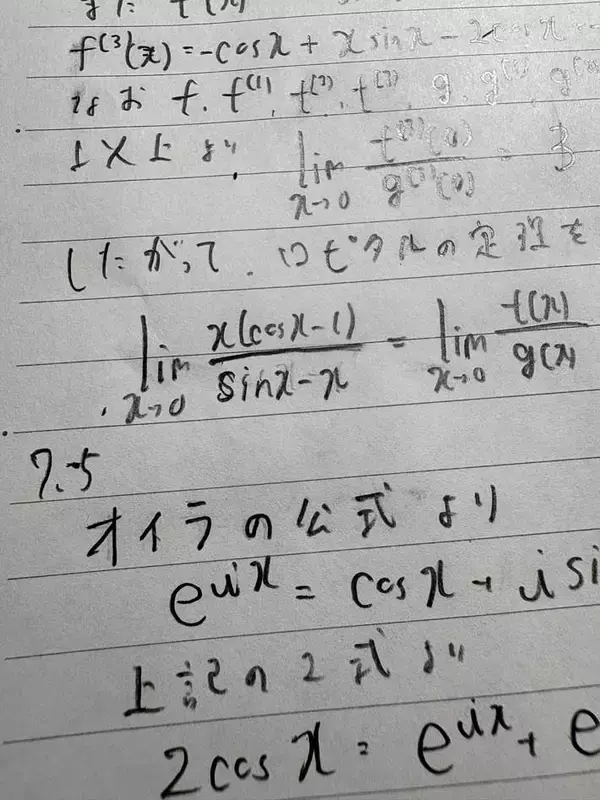 f⁽³⁾(x) = -cosx + x sinx - 2cosx
なお f, f⁽¹⁾, f⁽²⁾, f⁽³⁾, g, g⁽¹⁾,
以上より, lim x→0 f⁽³⁾(x)/g⁽³⁾(x) = 3
したがって, ロピタルの定理を
lim x→0 x(cosx-1)/sinx-x = lim x→0 f(x)/g(x)
7.-5
オイラの公式より
e^ix = cosx + i si
上記の2式より
2cosx = e^ix + e